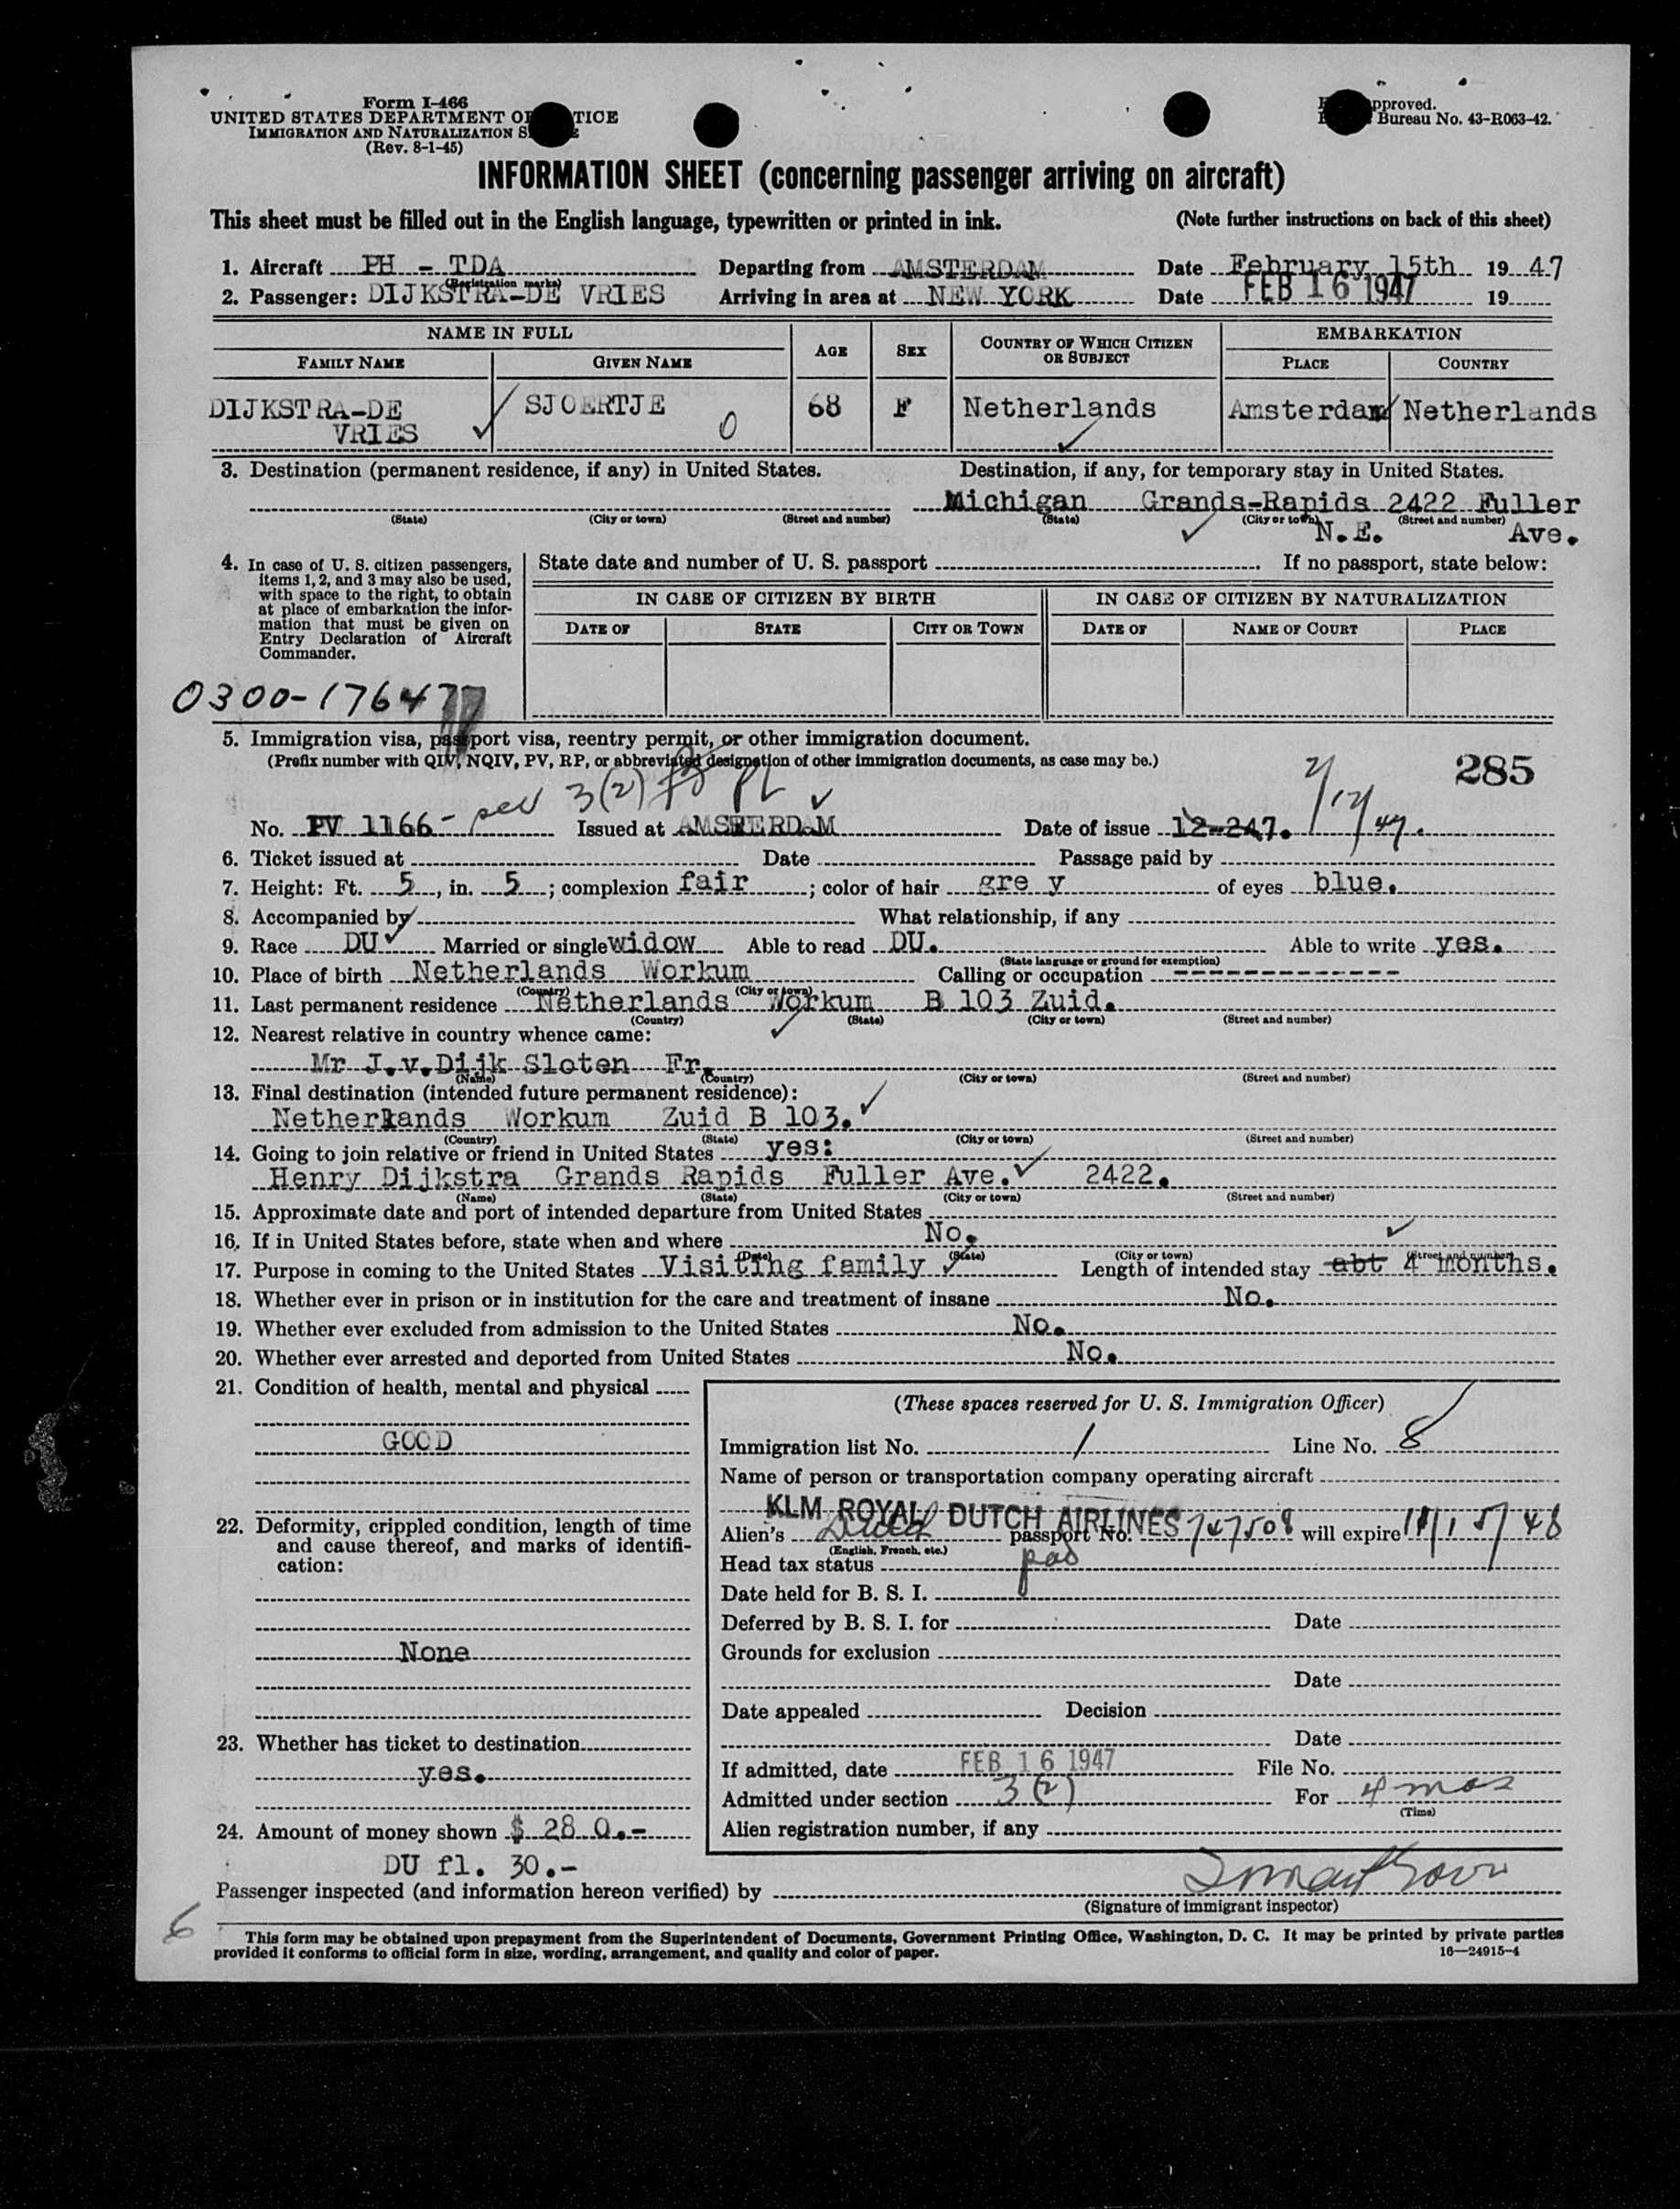 Form I-466
UNITED STATES DEPARTMENT OF TICE
IMMIGRATION AND NATURALIZATION S E
(Rev. 8-1-45)
pproved.
Bureau No. 43-R063-42.
INFORMATION SHEET (concerning passenger arriving on aircraft)
This sheet must be filled out in the English language, typewritten or printed in ink. (Note further instructions on back of this sheet)
1. Aircraft PH - TDA Departing from AMSTERDAM Date February 15th 19 47
(Registration marks)
2. Passenger: DIJKSTRA-DE VRIES Arriving in area at NEW YORK Date FEB 16 1947 19
NAME IN FULL AGE SEX COUNTRY OF WHICH CITIZEN OR SUBJECT EMBARKATION
FAMILY NAME GIVEN NAME PLACE COUNTRY
DIJKSTRA-DE SJOERTJE 68 F Netherlands Amsterdam Netherlands
VRIES 0
3. Destination (permanent residence, if any) in United States. Destination, if any, for temporary stay in United States.
Michigan Grands-Rapids 2422 Fuller
(State) (City or town) (Street and number) (State) (City or town) (Street and number)
N.E. Ave.
4. In case of U. S. citizen passengers, items 1, 2, and 3 may also be used, with space to the right, to obtain at place of embarkation the information that must be given on Entry Declaration of Aircraft Commander.
State date and number of U. S. passport If no passport, state below:
IN CASE OF CITIZEN BY BIRTH IN CASE OF CITIZEN BY NATURALIZATION
DATE OF STATE CITY OR TOWN DATE OF NAME OF COURT PLACE
0300-17647
5. Immigration visa, passport visa, reentry permit, or other immigration document.
(Prefix number with QIV, NQIV, PV, RP, or abbreviated designation of other immigration documents, as case may be.) 285
3(2) PL
No. PV 1166 - Issued at AMSTERDAM Date of issue 12-247. 2/12/47.
6. Ticket issued at Date Passage paid by
7. Height: Ft. 5, in. 5; complexion fair; color of hair gre y of eyes blue.
8. Accompanied by What relationship, if any
9. Race DU Married or single widow Able to read DU. Able to write yes.
(State language or ground for exemption)
10. Place of birth Netherlands Workum Calling or occupation --------------
(Country) (City or town)
11. Last permanent residence Netherlands Workum B 103 Zuid.
(Country) (State) (City or town) (Street and number)
12. Nearest relative in country whence came:
Mr J.v.Dijk Sloten Fr.
(Name) (Country) (City or town) (Street and number)
13. Final destination (intended future permanent residence):
Netherlands Workum Zuid B 103.
(Country) (State) (City or town) (Street and number)
14. Going to join relative or friend in United States yes:
Henry Dijkstra Grands Rapids Fuller Ave. 2422.
(Name) (State) (City or town) (Street and number)
15. Approximate date and port of intended departure from United States
16. If in United States before, state when and where No.
(Date) (State) (City or town) (Street and number)
17. Purpose in coming to the United States Visiting family Length of intended stay abt 4 months.
18. Whether ever in prison or in institution for the care and treatment of insane No.
19. Whether ever excluded from admission to the United States No.
20. Whether ever arrested and deported from United States No.
21. Condition of health, mental and physical
GOOD
22. Deformity, crippled condition, length of time and cause thereof, and marks of identification:
None
23. Whether has ticket to destination
yes.
24. Amount of money shown $ 28 0.-
DU fl. 30.-
(These spaces reserved for U. S. Immigration Officer)
Immigration list No. 1 Line No. 8
Name of person or transportation company operating aircraft
KLM ROYAL DUTCH AIRLINES
Alien's Dutch passport No. 747508 will expire 11/15/48
(English, French, etc.)
Head tax status
Date held for B. S. I.
Deferred by B. S. I. for Date
Grounds for exclusion
Date
Date appealed Decision
Date
If admitted, date FEB 16 1947 File No.
Admitted under section 3(2) For 4 mos
(Time)
Alien registration number, if any
Passenger inspected (and information hereon verified) by
(Signature of immigrant inspector)
6
This form may be obtained upon prepayment from the Superintendent of Documents, Government Printing Office, Washington, D. C. It may be printed by private parties
provided it conforms to official form in size, wording, arrangement, and quality and color of paper. 16—24915-4